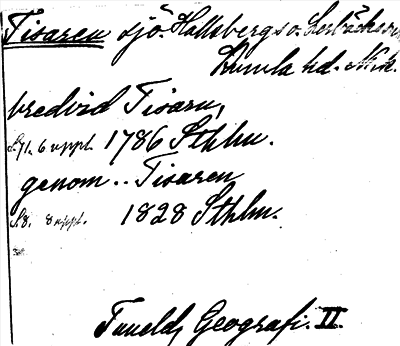 Tisaren sjö. Hallsbergs o. Lerbäcks sn
Kumla hd. Nrk.
bredvid Tisarn,
S. 71. 6 uppl. 1786 Sthlm.
genom .. Tisaren
S. 8. 8 uppl. 1828 Sthlm.
Tuneld, Geografi. II.